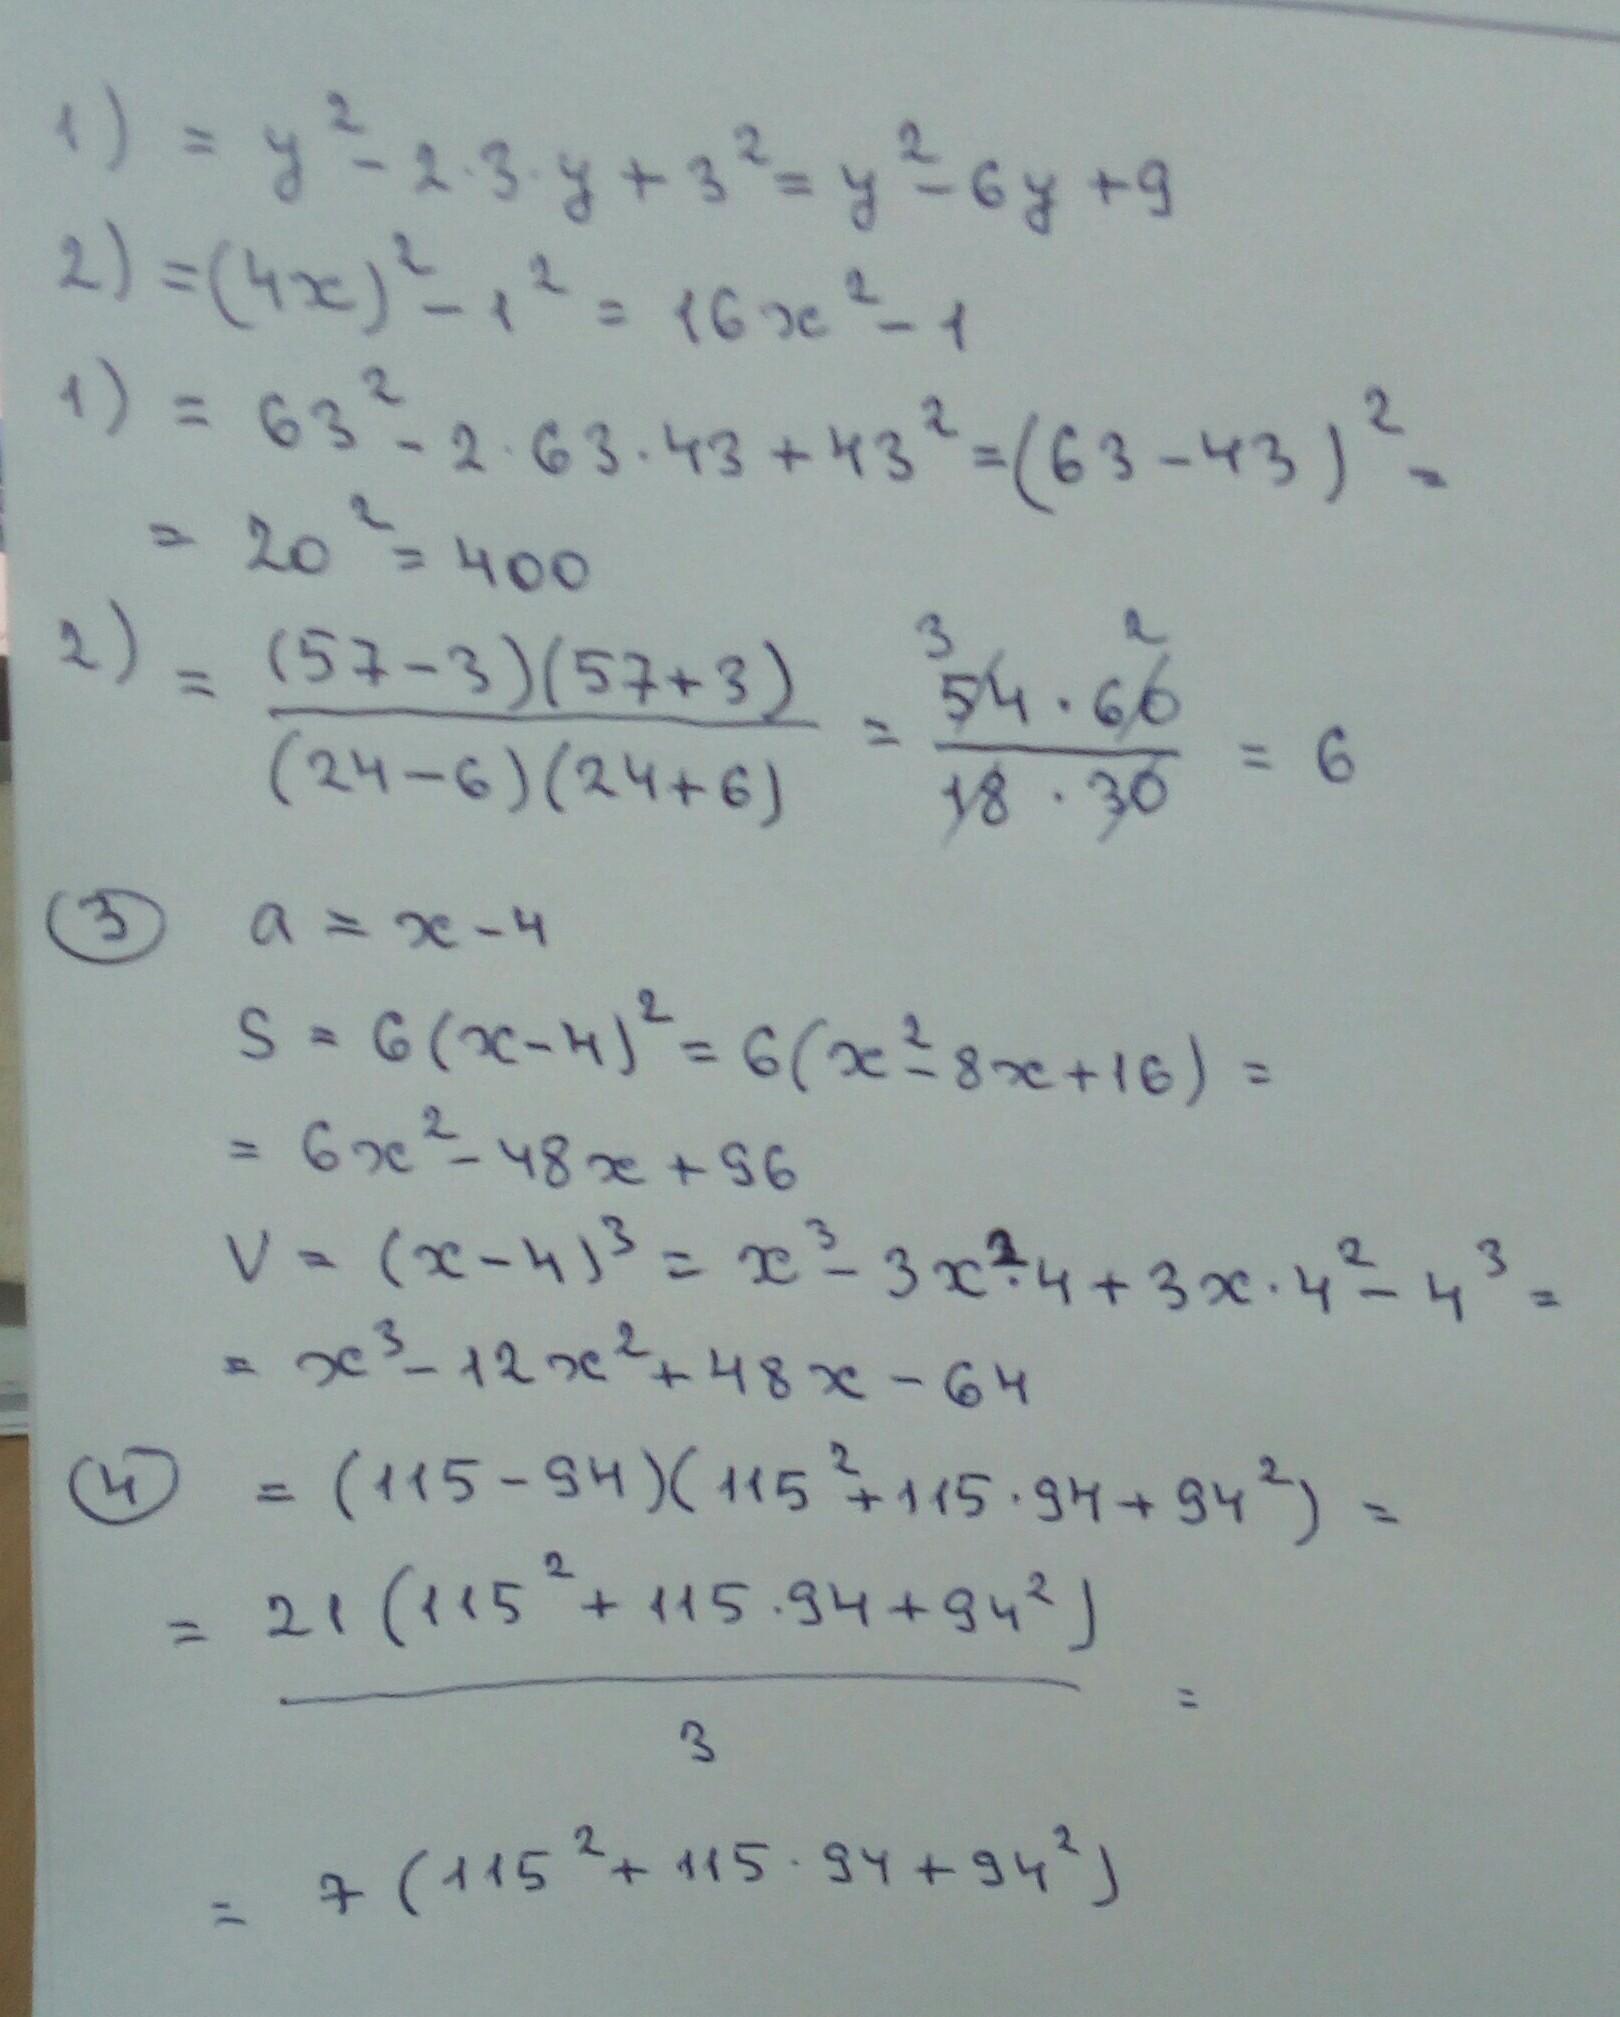 1) = y² - 2·3·y + 3² = y² - 6y + 9
2) = (4x)² - 1² = 16x² - 1
1) = 63² - 2·63·43 + 43² = (63 - 43)² =
= 20² = 400
2) = (57-3)(57+3) / (24-6)(24+6) = 54·60 / 18·30 = 6
3 2
③ a = x - 4
S = 6(x-4)² = 6(x² - 8x + 16) =
= 6x² - 48x + 96
V = (x-4)³ = x³ - 3x²·4 + 3x·4² - 4³ =
= x³ - 12x² + 48x - 64
④ = (115 - 94)(115² + 115·94 + 94²) =
= 21(115² + 115·94 + 94²) / 3 =
= 7(115² + 115·94 + 94²)